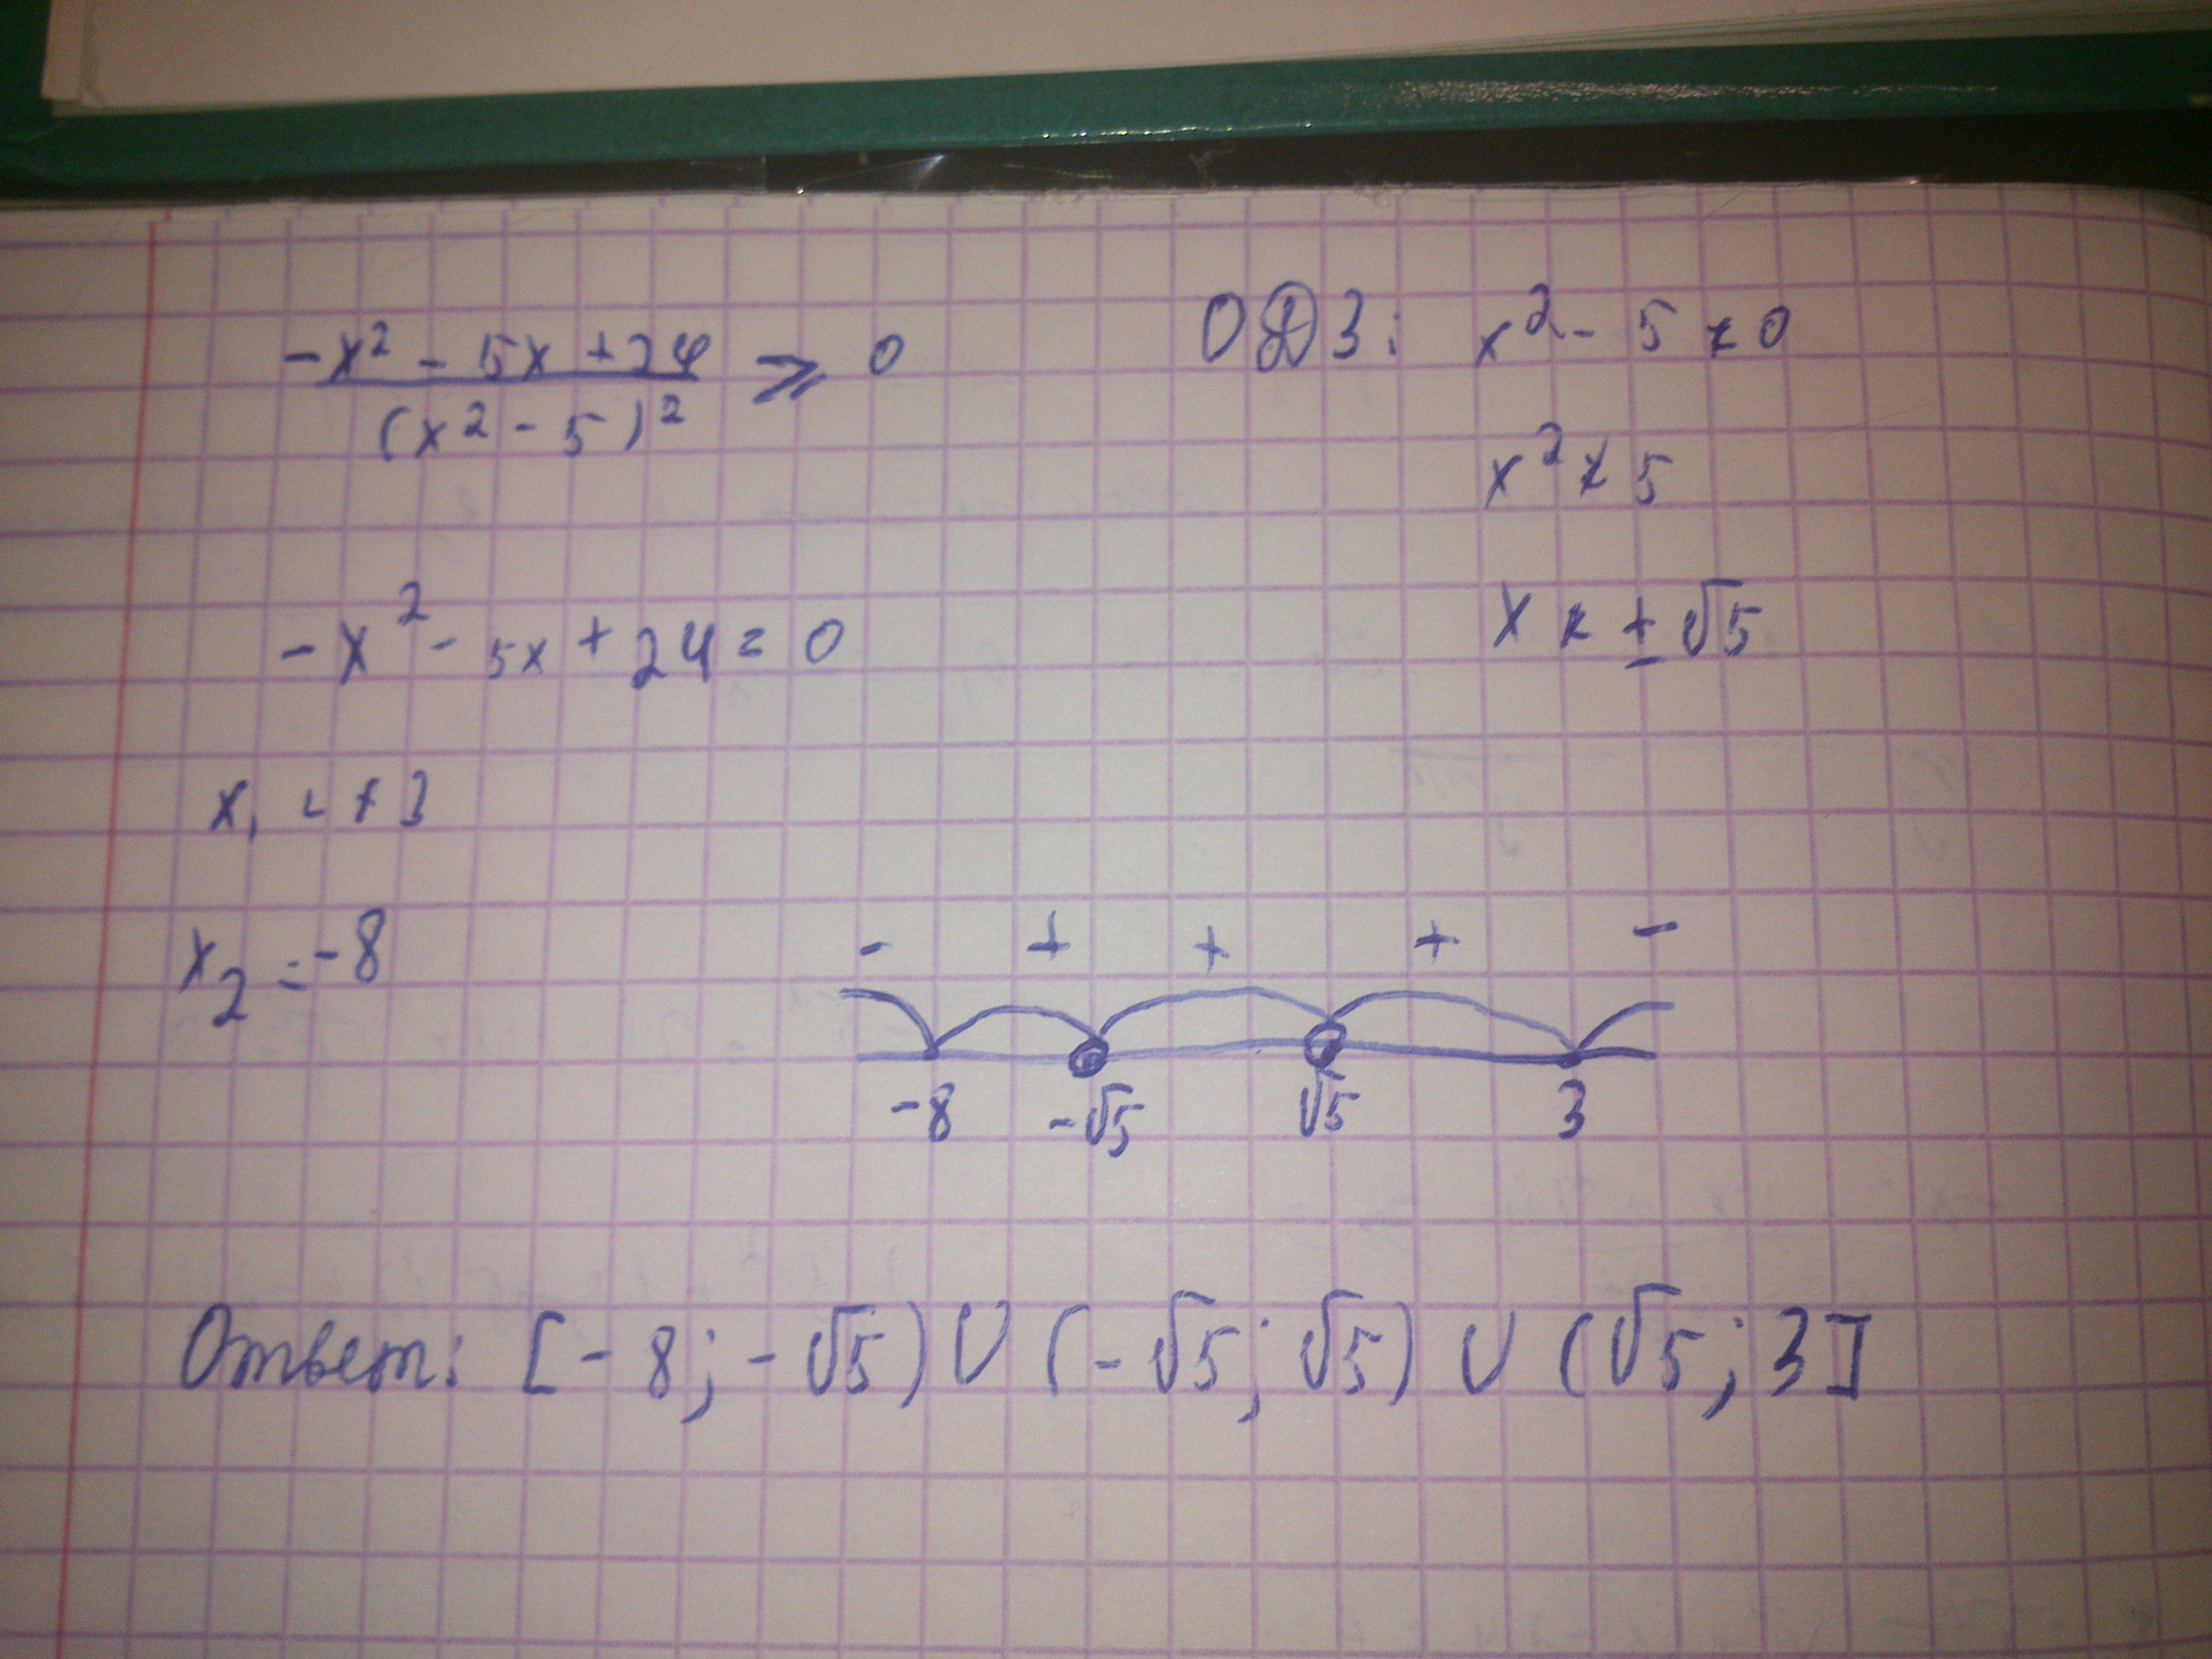 -x² - 5x + 24 / (x² - 5)² ⩾ 0
ОДЗ: x² - 5 ≠ 0
x² ≠ 5
x ≠ ± √5
-x² - 5x + 24 = 0
x₁ = +3
x₂ = -8
- + + + -
-8 -√5 √5 3
Ответ: [-8; -√5) ∪ (-√5; √5) ∪ (√5; 3]